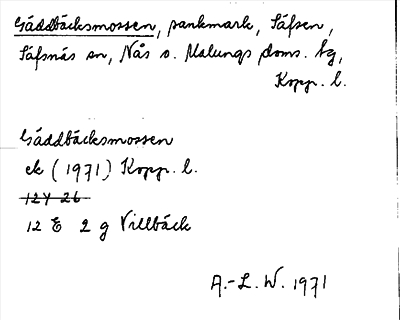 Gäddbäcksmossen, sankmark, Säfsen,
Säfsnäs sn, Nås o. Malungs doms. tg,
Kopp. l.
Gäddbäcksmossen
ek (1971) Kopp. l.
12Y 26
12 E 2 g Villbäck
A.-L. W. 1971